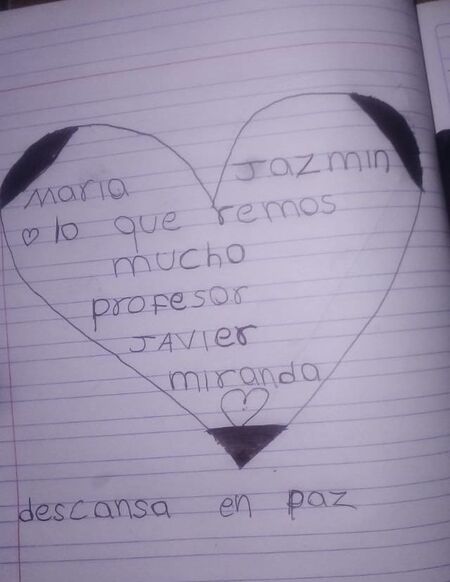 Maria Jazmin
lo que remos
mucho
profesor
JAVIer
miranda
descansa en paz